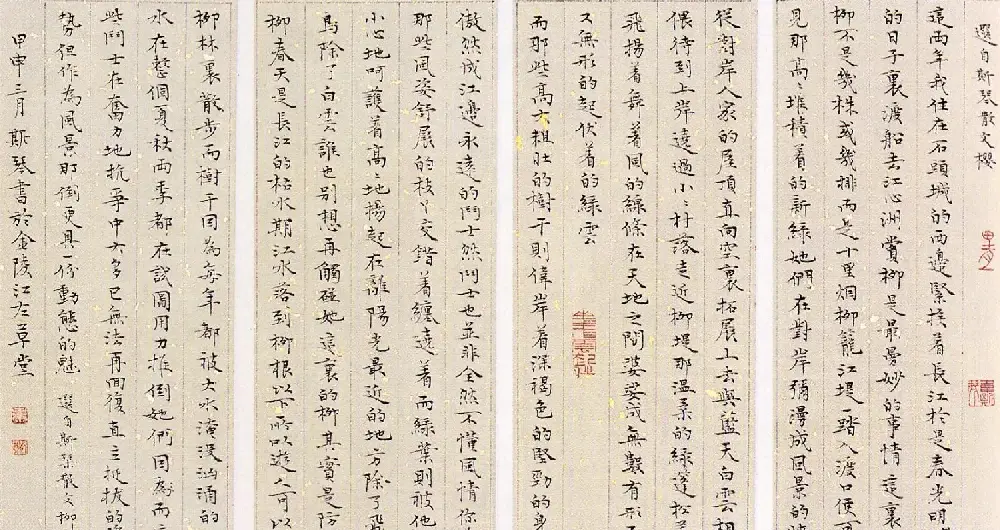 選自斯琴散文櫻
這两年我住在石頭城的西邊緊挨着長江於是春光明
的日子裏渡船去江心洲賞柳是最曼妙的事情這裏
柳不是幾株或幾排而是十里烟柳籠江堤一踏入渡口便
見那高〻堆積着的新綠她們在對岸彌漫成風景的
從對岸人家的屋頂直向空裏拓展上去與藍天白雲相
偎待到上岸遠過小〻村落走近柳堤那温柔的綠遂
飛揚着舞着風的綠條在天地之間婆娑成無數有形
又無形的起伏着的綠雲
而那些高大粗壯的樹干則偉岸着深褐色的堅勁的身
傲然成江邊永遠的鬥士然鬥士也並非全然不懂風情
那些風姿舒展的枝丫交錯着纏遶着而綠葉則被他
小心地呵護着高〻地揚起在離陽光最近的地方除了飛
鳥除了白雲誰也别想再觸碰她這裏的柳其實是防
柳春天是長江的枯水期江水落到柳根以下所以遊人可以
柳林裏散步而樹干因為每年都被大水淹没洶涌的
水在整個夏秋两季都在試圖用力推倒她們因為而
些鬥士在奮力地抗争中大多已無法再回復直立挺拔的
勢但作為風景那倒更具一份動態的魅 選自斯琴散文柳
甲申三月斯琴書於金陵江左草堂